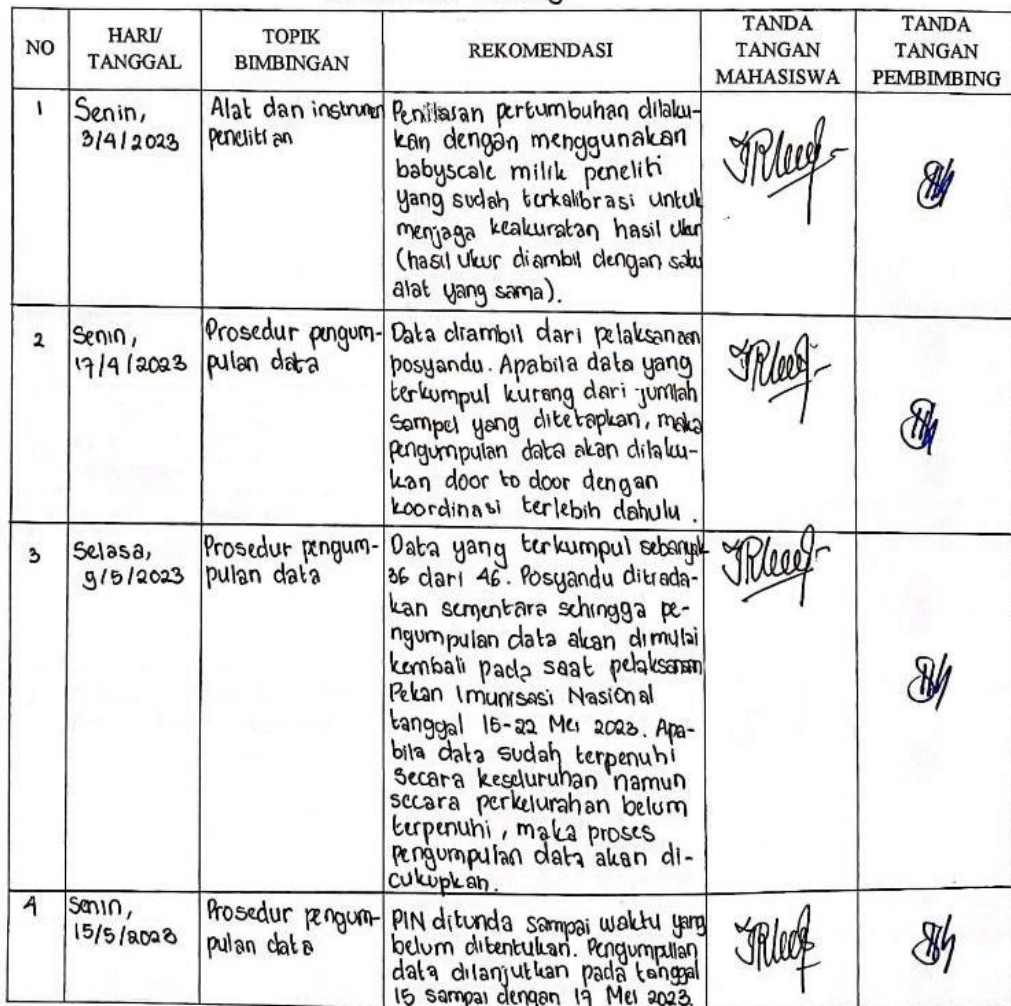 NO
HARI/
TANGGAL
TOPIK
BIMBINGAN
REKOMENDASI
TANDA
TANGAN
MAHASISWA
TANDA
TANGAN
PEMBIMBING
1
Senin,
3/4/2023
Alat dan instrumen
penelitian
Penilaian pertumbuhan dilaku-
kan dengan menggunakan
babyscale milik peneliti
yang sudah terkalibrasi untuk
menjaga keakuratan hasil ukur
(hasil ukur diambil dengan satu
alat yang sama).
2
Senin,
17/4/2023
Prosedur pengum-
pulan data
Data diambil dari pelaksanaan
posyandu. Apabila data yang
terkumpul kurang dari jumlah
sampel yang ditetapkan, maka
pengumpulan data akan dilaku-
kan door to door dengan
koordinasi terlebih dahulu.
3
Selasa,
9/5/2023
Prosedur pengum-
pulan data
Data yang terkumpul sebanyak
36 dari 46. Posyandu ditiada-
kan sementara sehingga pe-
ngumpulan data akan dimulai
kembali pada saat pelaksanaan
Pekan Imunisasi Nasional
tanggal 15-22 Mei 2023. Apa-
bila data sudah terpenuhi
secara keseluruhan namun
secara perkelurahan belum
terpenuhi, maka proses
pengumpulan data akan di-
cukupkan.
4
Senin,
15/5/2023
Prosedur pengum-
pulan data
PIN ditunda sampai waktu yang
belum ditentukan. Pengumpulan
data dilanjutkan pada tanggal
15 sampai dengan 19 Mei 2023.